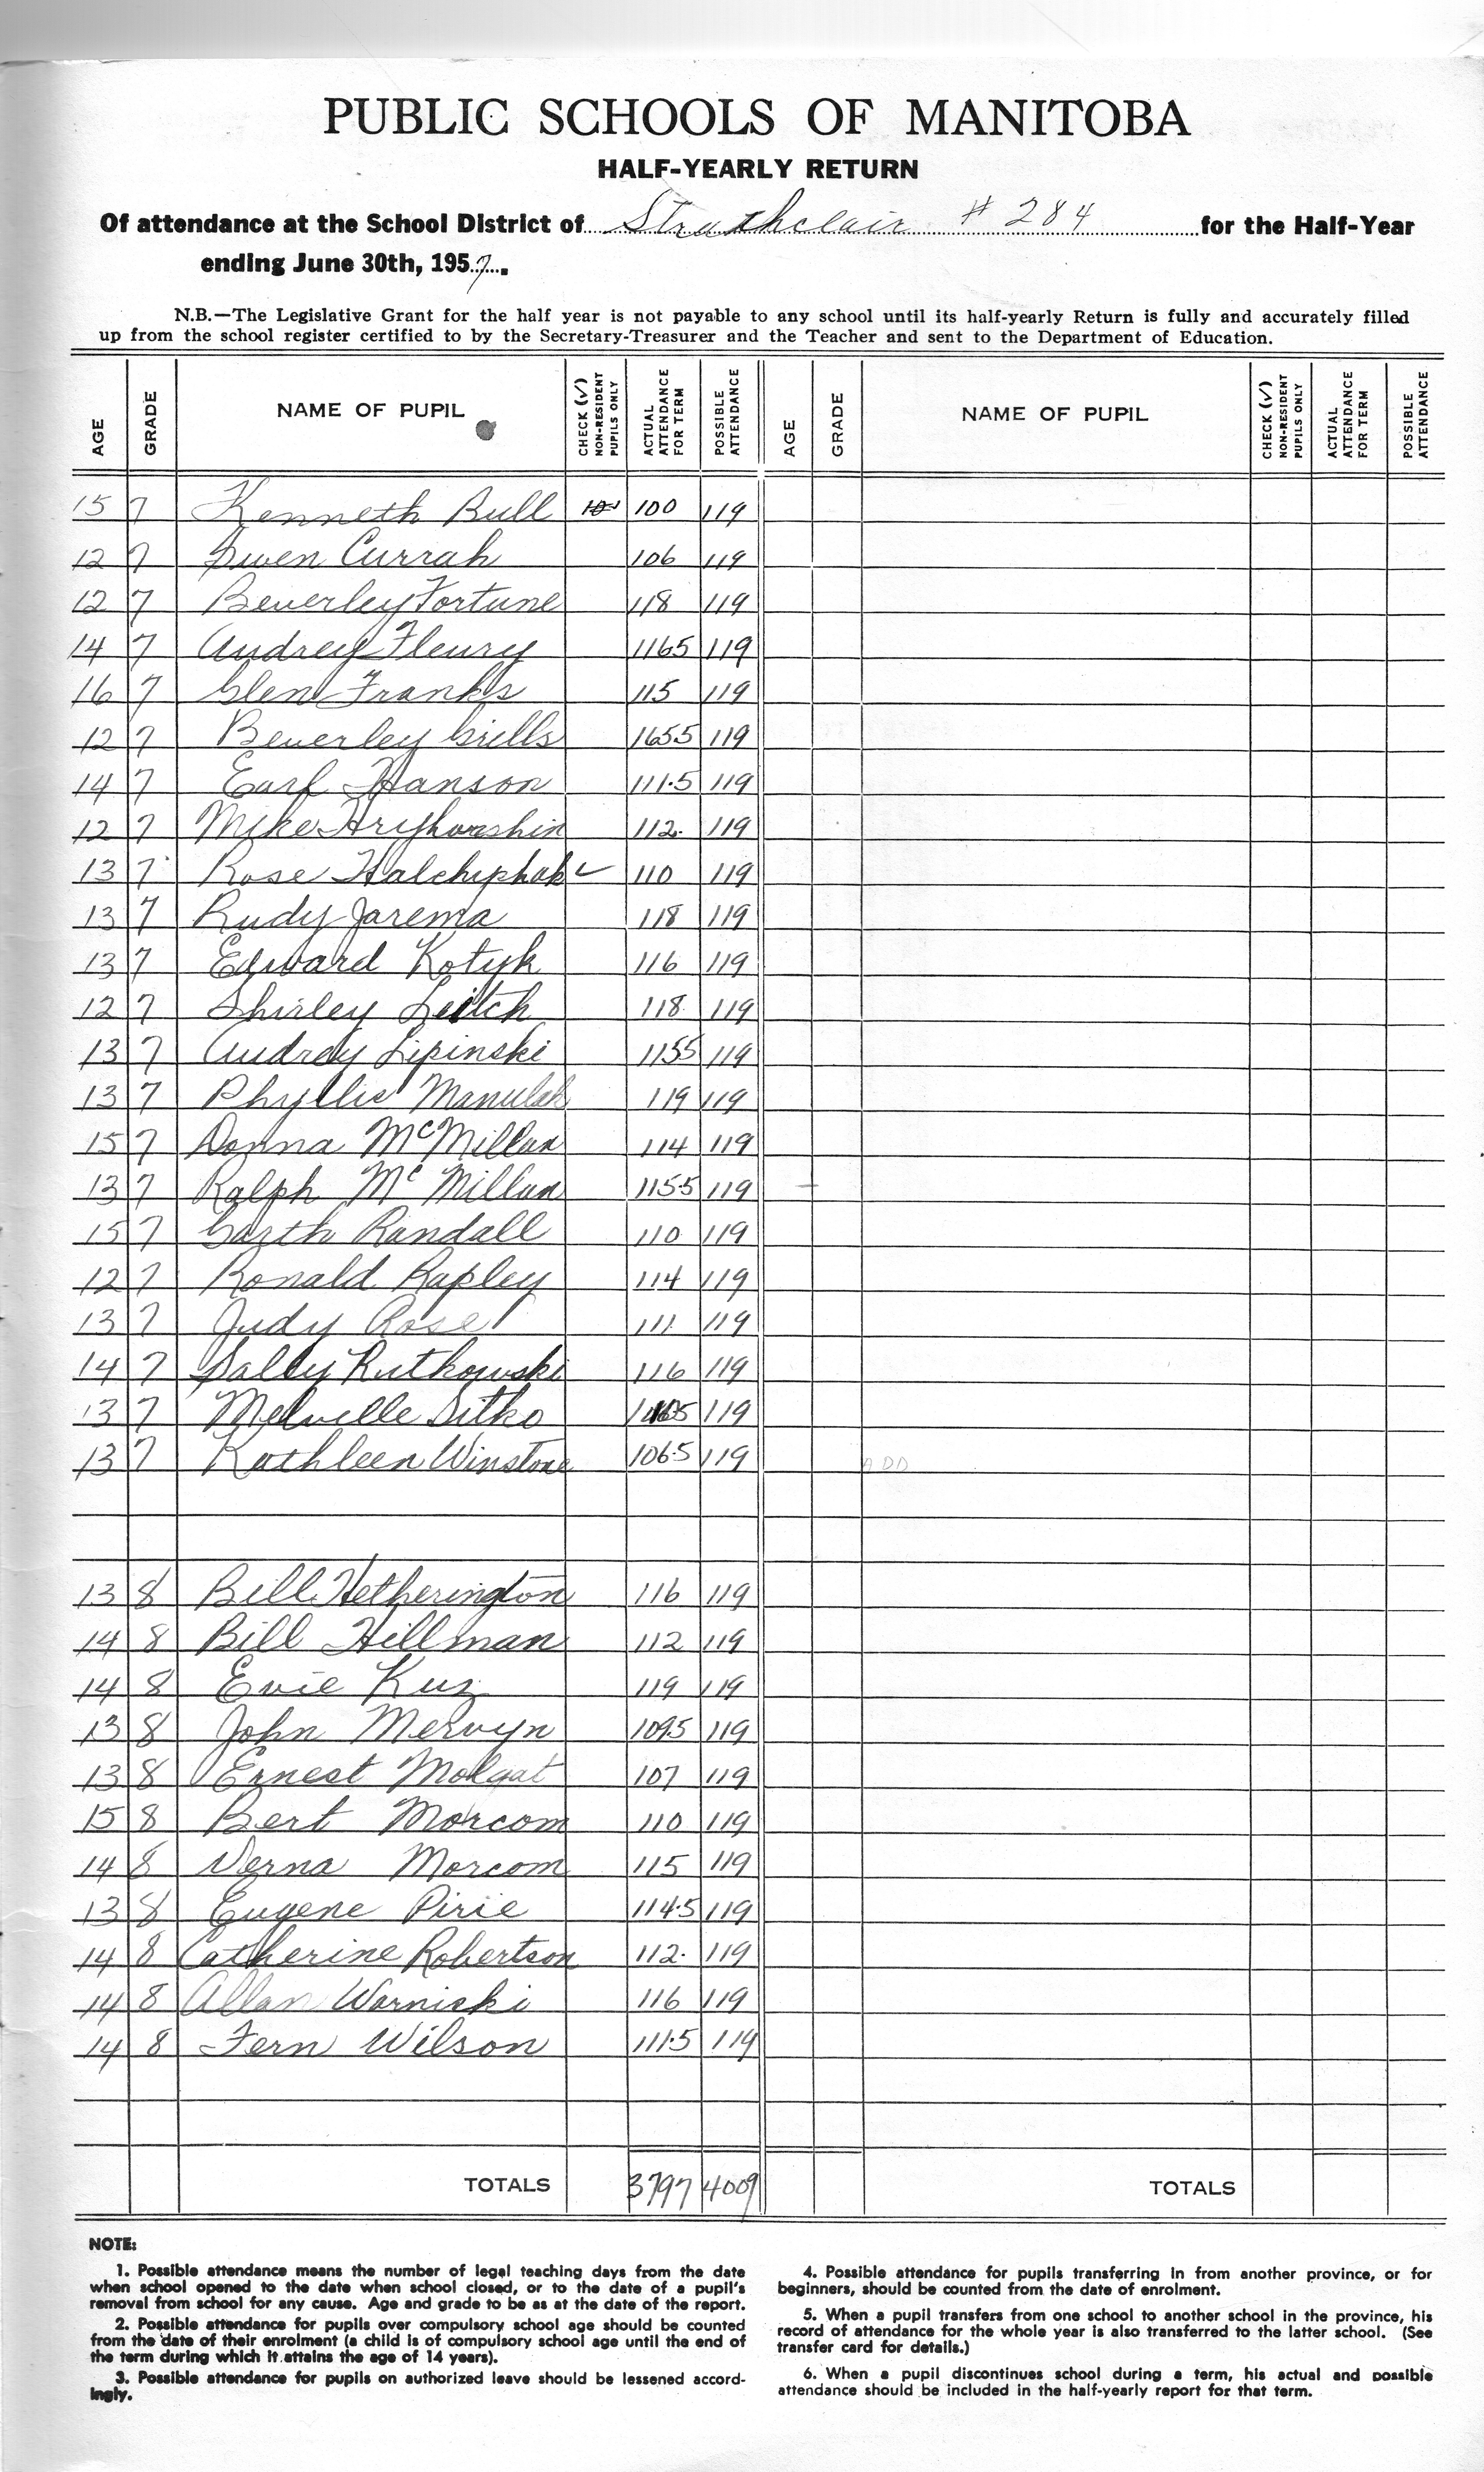 PUBLIC SCHOOLS OF MANITOBA
HALF-YEARLY RETURN
Of attendance at the School District of Strathclair # 284 for the Half-Year
ending June 30th, 1957.
N.B.—The Legislative Grant for the half year is not payable to any school until its half-yearly Return is fully and accurately filled
up from the school register certified to by the Secretary-Treasurer and the Teacher and sent to the Department of Education.
AGE GRADE NAME OF PUPIL CHECK (✓) NON-RESIDENT PUPILS ONLY ACTUAL ATTENDANCE FOR TERM POSSIBLE ATTENDANCE AGE GRADE NAME OF PUPIL CHECK (✓) NON-RESIDENT PUPILS ONLY ACTUAL ATTENDANCE FOR TERM POSSIBLE ATTENDANCE
15 7 Kenneth Bull 100 119
12 7 Gwen Currah 106 119
12 7 Beverley Fortune 118 119
14 7 Audrey Fleury 1165 119
16 7 Glen Franks 115 119
12 7 Beverley Grills 1655 119
14 7 Earl Hanson 111.5 119
12 7 Mike 112. 119
13 7 Rose ✓ 110 119
13 7 Rudy Jarema 118 119
13 7 Edward Kotyk 116 119
12 7 Shirley Leitch 118 119
13 7 Audrey Lipinski 1155 119
13 7 Phyllis Manulak 119 119
15 7 Donna McMillan 114 119
13 7 Ralph McMillan 115.5 119
15 7 Garth Randall 110 119
12 7 Ronald Rapley 114 119
13 7 Judy Rose 111 119
14 7 Sally Rutkowski 116 119
13 7 Melville Sitko 119
13 7 Kathleen Winstone 106.5 119
ADD
13 8 Bill Hetherington 116 119
14 8 Bill Hillman 112 119
14 8 Evie Kuz 119 119
13 8 John Mervyn 109.5 119
13 8 Ernest Molgat 107 119
15 8 Bert Morcom 110 119
14 8 Verna Morcom 115 119
13 8 Eugene Pirie 114.5 119
14 8 Catherine Robertson 112. 119
14 8 Allan Warniski 116 119
14 8 Fern Wilson 111.5 119
TOTALS 3797 4009 TOTALS
NOTE:
1. Possible attendance means the number of legal teaching days from the date
when school opened to the date when school closed, or to the date of a pupil's
removal from school for any cause. Age and grade to be as at the date of the report.
2. Possible attendance for pupils over compulsory school age should be counted
from the date of their enrolment (a child is of compulsory school age until the end of
the term during which it attains the age of 14 years).
3. Possible attendance for pupils on authorized leave should be lessened accord-
ingly.
4. Possible attendance for pupils transferring in from another province, or for
beginners, should be counted from the date of enrolment.
5. When a pupil transfers from one school to another school in the province, his
record of attendance for the whole year is also transferred to the latter school. (See
transfer card for details.)
6. When a pupil discontinues school during a term, his actual and possible
attendance should be included in the half-yearly report for that term.